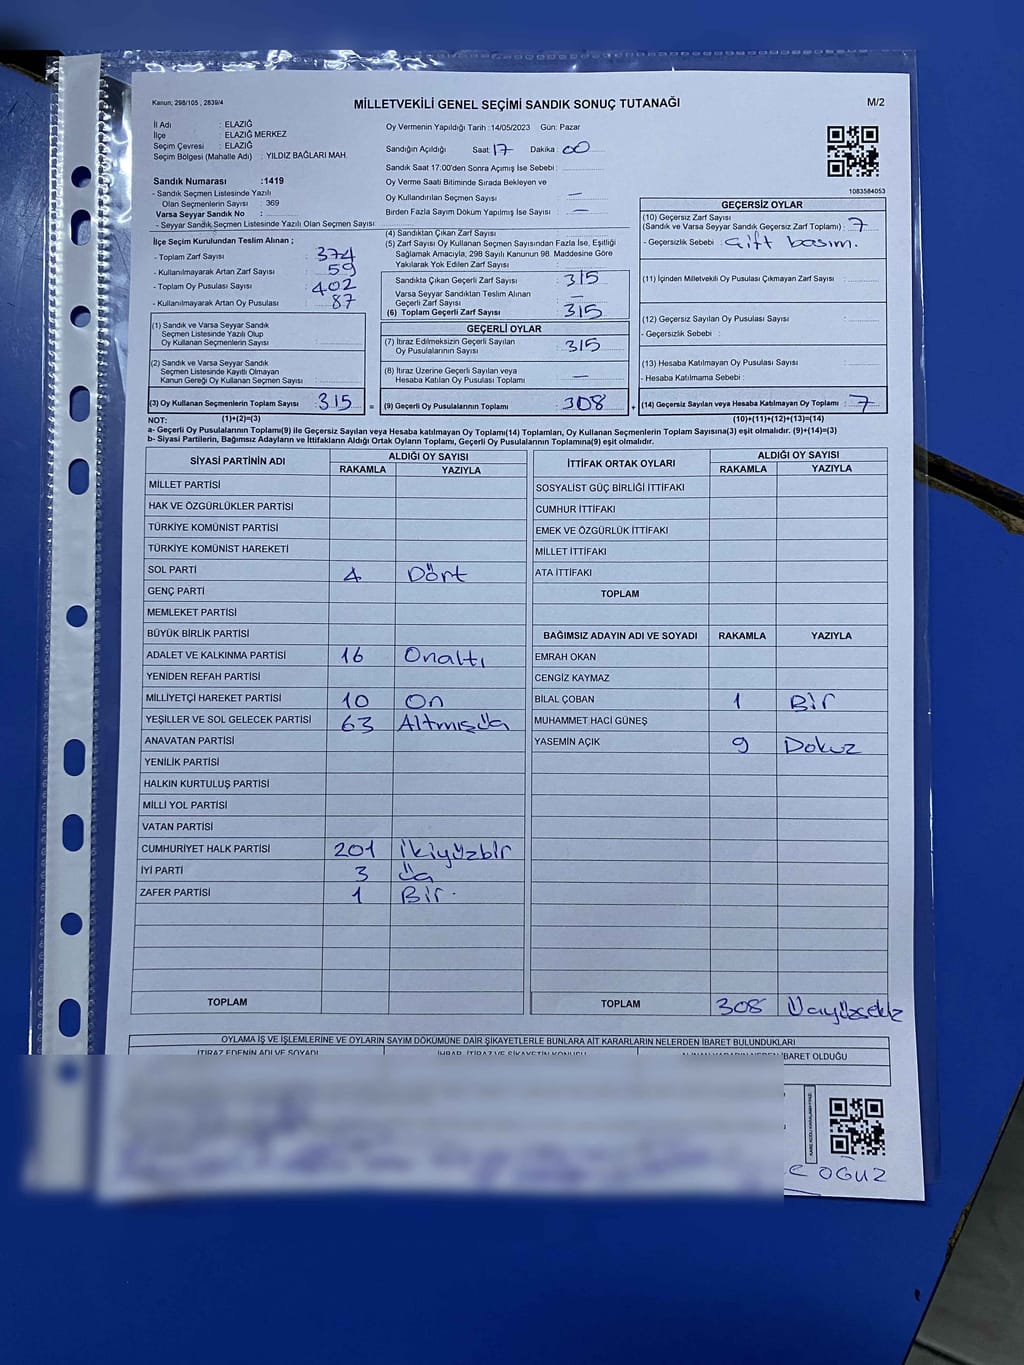 Kanun; 298/105 , 2839/4
MİLLETVEKİLİ GENEL SEÇİMİ SANDIK SONUÇ TUTANAĞI
M/2
İl Adı : ELAZIĞ
İlçe : ELAZIĞ MERKEZ
Seçim Çevresi : ELAZIĞ
Seçim Bölgesi (Mahalle Adı) : YILDIZ BAĞLARI MAH.
Sandık Numarası :1419
- Sandık Seçmen Listesinde Yazılı
Olan Seçmenlerin Sayısı : 369
Varsa Seyyar Sandık No :
- Seyyar Sandık Seçmen Listesinde Yazılı Olan Seçmen Sayısı :
İlçe Seçim Kurulundan Teslim Alınan ;
- Toplam Zarf Sayısı : 374
- Kullanılmayarak Artan Zarf Sayısı : 59
- Toplam Oy Pusulası Sayısı : 402
- Kullanılmayarak Artan Oy Pusulası : 87
(1) Sandık ve Varsa Seyyar Sandık
Seçmen Listesinde Yazılı Olup
Oy Kullanan Seçmenlerin Sayısı :
(2) Sandık ve Varsa Seyyar Sandık
Seçmen Listesinde Kayıtlı Olmayan
Kanun Gereği Oy Kullanan Seçmen Sayısı :
(3) Oy Kullanan Seçmenlerin Toplam Sayısı : 315 =
Oy Vermenin Yapıldığı Tarih :14/05/2023 Gün: Pazar
Sandığın Açıldığı Saat: 17 Dakika: 00
Sandık Saat 17:00'den Sonra Açımış İse Sebebi :
Oy Verme Saati Bitiminde Sırada Bekleyen ve
Oy Kullandırılan Seçmen Sayısı : —
Birden Fazla Sayım Döküm Yapılmış İse Sayısı : —
(4) Sandıktan Çıkan Zarf Sayısı :
(5) Zarf Sayısı Oy Kullanan Seçmen Sayısından Fazla İse, Eşitliği
Sağlamak Amacıyla, 298 Sayılı Kanunun 98. Maddesine Göre
Yakılarak Yok Edilen Zarf Sayısı :
Sandıkta Çıkan Geçerli Zarf Sayısı : 315
Varsa Seyyar Sandıktan Teslim Alınan
Geçerli Zarf Sayısı : —
(6) Toplam Geçerli Zarf Sayısı : 315
GEÇERLİ OYLAR
(7) İtiraz Edilmeksizin Geçerli Sayılan
Oy Pusulalarının Sayısı : 315
(8) İtiraz Üzerine Geçerli Sayılan veya
Hesaba Katılan Oy Pusulası Toplamı : —
(9) Geçerli Oy Pusulalarının Toplamı : 308 +
1083584053
GEÇERSİZ OYLAR
(10) Geçersiz Zarf Sayısı
(Sandık ve Varsa Seyyar Sandık Geçersiz Zarf Toplamı) : 7
- Geçersizlik Sebebi : Çift basım.
(11) İçinden Milletvekili Oy Pusulası Çıkmayan Zarf Sayısı :
(12) Geçersiz Sayılan Oy Pusulası Sayısı :
- Geçersizlik Sebebi :
(13) Hesaba Katılmayan Oy Pusulası Sayısı :
- Hesaba Katılmama Sebebi :
(14) Geçersiz Sayılan veya Hesaba Katılmayan Oy Toplamı : 7
NOT: (1)+(2)=(3) (10)+(11)+(12)+(13)=(14)
a- Geçerli Oy Pusulalarının Toplamı(9) ile Geçersiz Sayılan veya Hesaba katılmayan Oy Toplamı(14) Toplamları, Oy Kullanan Seçmenlerin Toplam Sayısına(3) eşit olmalıdır. (9)+(14)=(3)
b- Siyasi Partilerin, Bağımsız Adayların ve İttifakların Aldığı Ortak Oyların Toplamı, Geçerli Oy Pusulalarının Toplamına(9) eşit olmalıdır.
SİYASİ PARTİNİN ADI ALDIĞI OY SAYISI
RAKAMLA YAZIYLA
MİLLET PARTİSİ
HAK VE ÖZGÜRLÜKLER PARTİSİ
TÜRKİYE KOMÜNİST PARTİSİ
TÜRKİYE KOMÜNİST HAREKETİ
SOL PARTİ 4 Dört
GENÇ PARTİ
MEMLEKET PARTİSİ
BÜYÜK BİRLİK PARTİSİ
ADALET VE KALKINMA PARTİSİ 16 Onaltı
YENİDEN REFAH PARTİSİ
MİLLİYETÇİ HAREKET PARTİSİ 10 On
YEŞİLLER VE SOL GELECEK PARTİSİ 63 Altmışüç
ANAVATAN PARTİSİ
YENİLİK PARTİSİ
HALKIN KURTULUŞ PARTİSİ
MİLLİ YOL PARTİSİ
VATAN PARTİSİ
CUMHURİYET HALK PARTİSİ 201 İkiyüzbir
İYİ PARTİ 3 Üç
ZAFER PARTİSİ 1 Bir.
TOPLAM
İTTİFAK ORTAK OYLARI ALDIĞI OY SAYISI
RAKAMLA YAZIYLA
SOSYALİST GÜÇ BİRLİĞİ İTTİFAKI
CUMHUR İTTİFAKI
EMEK VE ÖZGÜRLÜK İTTİFAKI
MİLLET İTTİFAKI
ATA İTTİFAKI
TOPLAM
BAĞIMSIZ ADAYIN ADI VE SOYADI RAKAMLA YAZIYLA
EMRAH OKAN
CENGİZ KAYMAZ
BİLAL ÇOBAN 1 Bir
MUHAMMET HACİ GÜNEŞ
YASEMİN AÇIK 9 Dokuz
TOPLAM 308 Üçyüzsekiz
OYLAMA İŞ VE İŞLEMLERİNE VE OYLARIN SAYIM DÖKÜMÜNE DAİR ŞİKAYETLERLE BUNLARA AİT KARARLARIN NELERDEN İBARET BULUNDUKLARI
İTİRAZ EDENİN ADI VE SOYADI İHBAR, İTİRAZ VE ŞİKAYETİN KONUSU İBARET OLDUĞU
OĞUZ